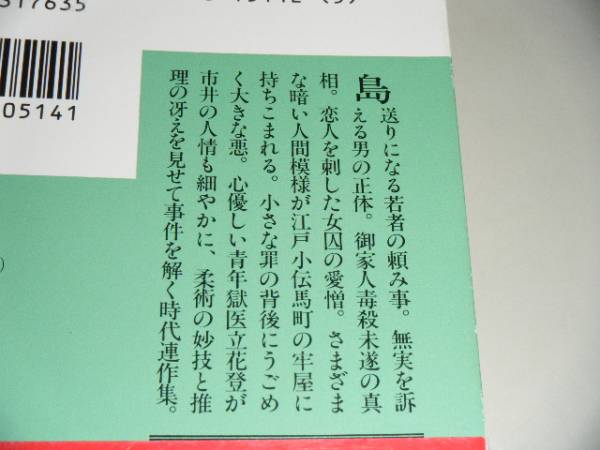 517635
05141
島送りになる若者の頼み事。無実を訴
える男の正体。御家人毒殺未遂の真
相。恋人を刺した女囚の愛憎。さまざま
な暗い人間模様が江戸小伝馬町の牢屋に
持ちこまれる。小さな罪の背後にうごめ
く大きな悪。心優しい青年獄医立花登が
市井の人情も細やかに、柔術の妙技と推
理の冴えを見せて事件を解く時代連作集。